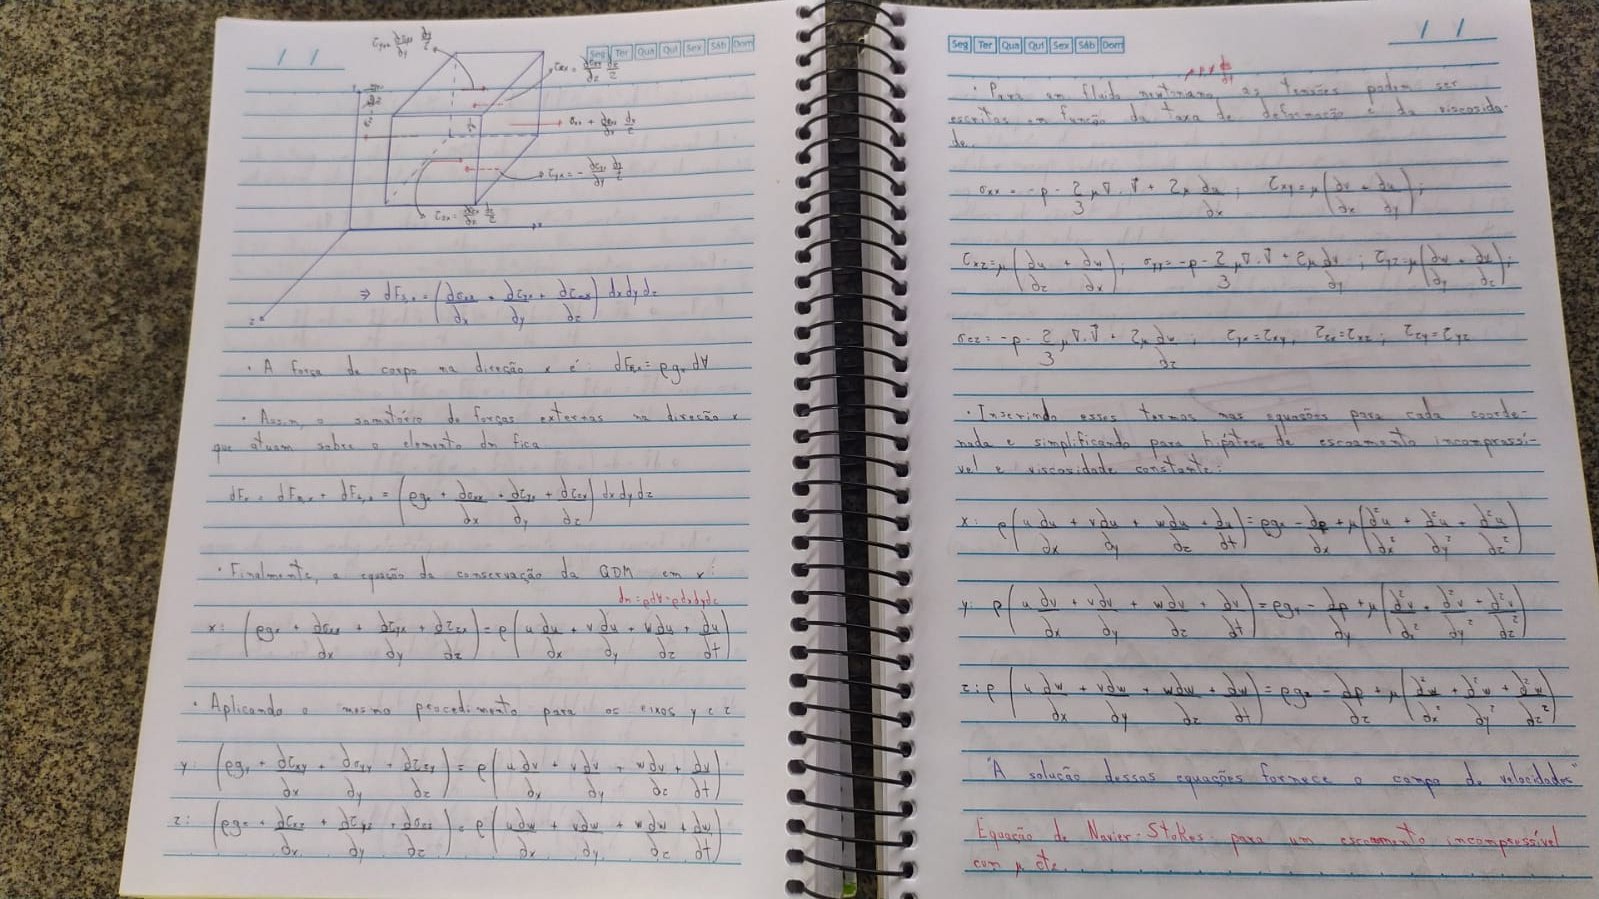 Seg Ter Qua Qui Sex Sáb Dom
⇒ dFs,x = (∂σxx/∂x + ∂τyx/∂y + ∂τzx/∂z) dxdydz
· A força de corpo na direção x é: dFB,x = ρgx dV
· Assim, o somatório de forças externas na direção x
que atuam sobre o elemento dm fica
dFx = dFB,x + dFs,x = (ρgx + ∂σxx/∂x + ∂τyx/∂y + ∂τzx/∂z) dxdydz
· Finalmente, a equação da conservação da QDM em x:
dm = ρdV = ρdxdydz
x: (ρgx + ∂σxx/∂x + ∂τyx/∂y + ∂τzx/∂z) = ρ(u ∂u/∂x + v ∂u/∂y + w ∂u/∂z + ∂u/∂t)
· Aplicando o mesmo procedimento para os eixos y e z
y: (ρgy + ∂τxy/∂x + ∂σyy/∂y + ∂τzy/∂z) = ρ(u ∂v/∂x + v ∂v/∂y + w ∂v/∂z + ∂v/∂t)
z: (ρgz + ∂τxz/∂x + ∂τyz/∂y + ∂σzz/∂z) = ρ(u ∂w/∂x + v ∂w/∂y + w ∂w/∂z + ∂w/∂t)
Seg Ter Qua Qui Sex Sáb Dom
· Para um fluido newtoniano as tensões podem ser
escritas em função da taxa de deformação e da viscosida-
de.
σxx = -p - 2/3 μ∇·V⃗ + 2μ ∂u/∂x ; τxy = μ(∂v/∂x + ∂u/∂y);
τxz = μ(∂u/∂z + ∂w/∂x); σyy = -p - 2/3 μ∇·V⃗ + 2μ ∂v/∂y ; τyz = μ(∂w/∂y + ∂v/∂z);
σzz = -p - 2/3 μ∇·V⃗ + 2μ ∂w/∂z ; τyx = τxy, τzx = τxz ; τzy = τyz
· Inserindo esses termos nas equações para cada coorde-
nada e simplificando para hipótese de escoamento incompressí-
vel e viscosidade constante:
x: ρ(u ∂u/∂x + v ∂u/∂y + w ∂u/∂z + ∂u/∂t) = ρgx - ∂p/∂x + μ(∂²u/∂x² + ∂²u/∂y² + ∂²u/∂z²)
y: ρ(u ∂v/∂x + v ∂v/∂y + w ∂v/∂z + ∂v/∂t) = ρgy - ∂p/∂y + μ(∂²v/∂x² + ∂²v/∂y² + ∂²v/∂z²)
z: ρ(u ∂w/∂x + v ∂w/∂y + w ∂w/∂z + ∂w/∂t) = ρgz - ∂p/∂z + μ(∂²w/∂x² + ∂²w/∂y² + ∂²w/∂z²)
"A solução dessas equações fornece o campo de velocidades"
Equação de Navier-Stokes para um escoamento incompressível
com μ cte.